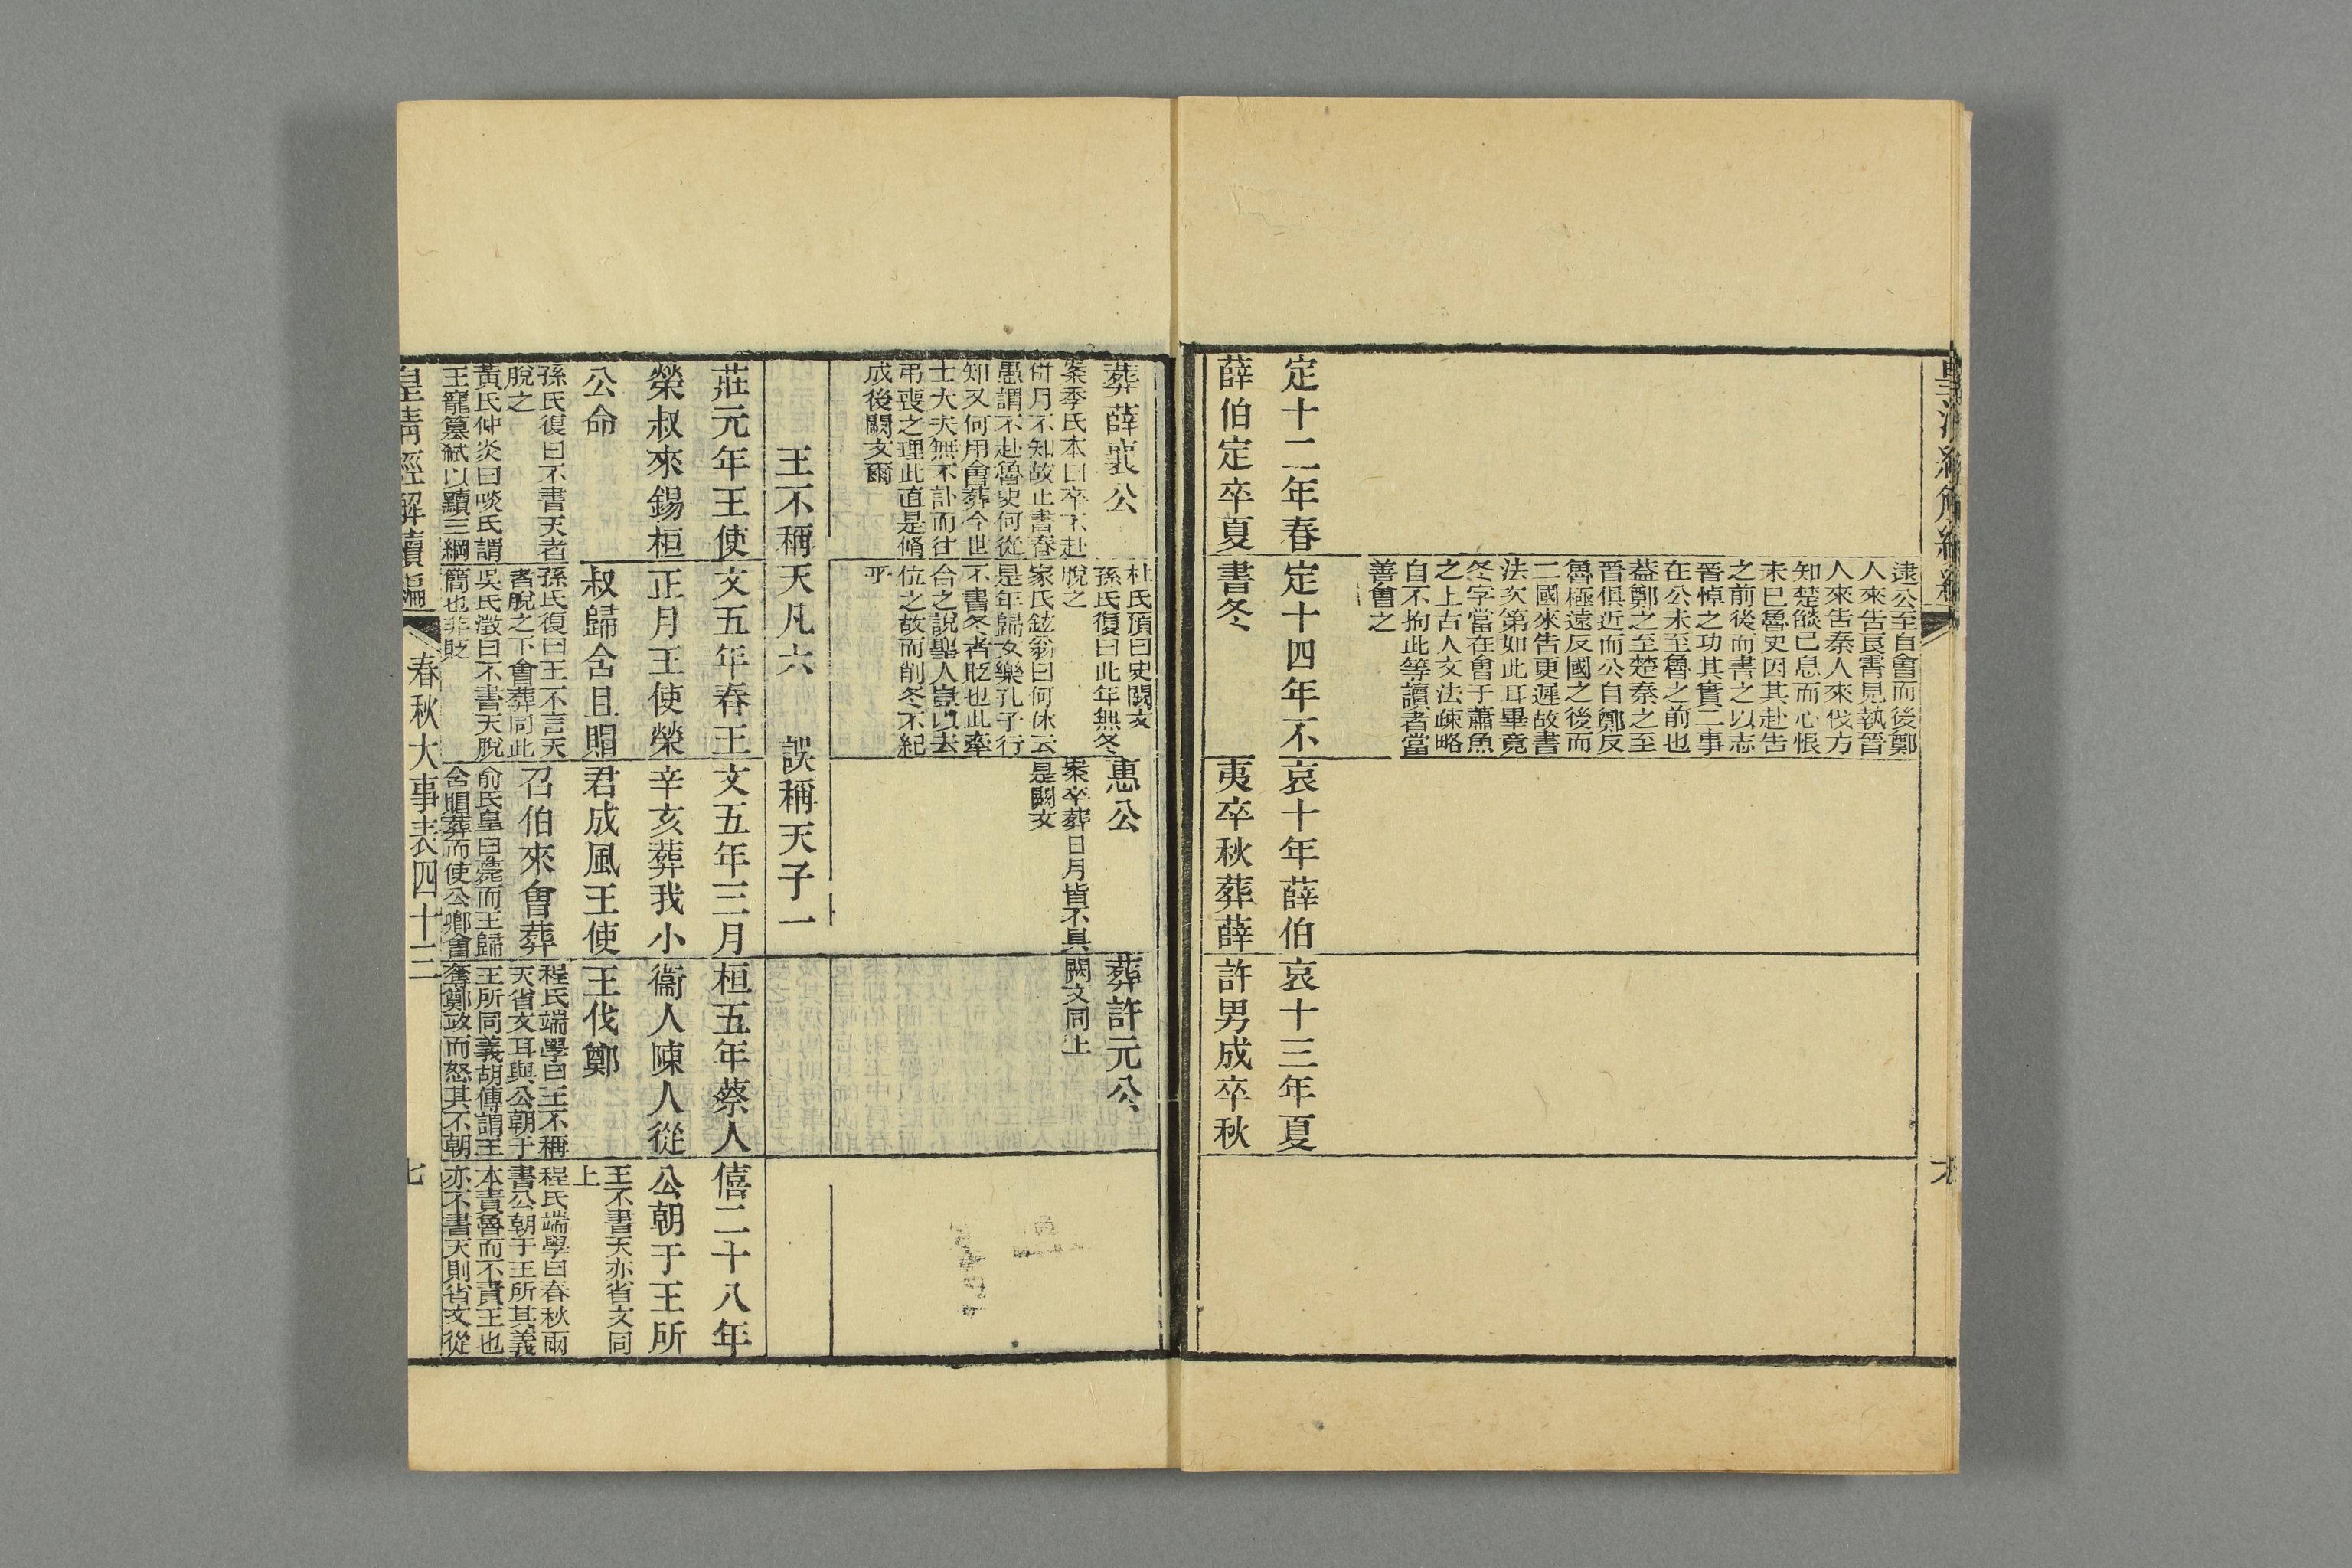 逮公至自會而後鄭
人來告良霄見執晉
人來告秦人來伐方
知楚燄已息而心悵
未已魯史因其赴告
之前後而書之以志
晉悼之功其實二事
在公未至魯之前也
益鄭之至楚秦之至
晉俱近而公自鄭反
魯極遠反國之後而
二國來告更遲故書
法次第如此耳畢竟
冬字當在會于蕭魚
之上古人文法疎略
自不拘此等讀者當
善會之
定十二年春
薛伯定卒夏
定十四年不
書冬
哀十年薛伯
夷卒秋葬薛
哀十三年夏
許男成卒秋
葬薛襄公
案季氏本曰卒不赴
併月不知故止書春
愚謂不赴魯史何從
知又何用會葬今世
士大夫無不訃而往
弔喪之理此直是脩
成後闕文爾
杜氏預曰史闕文
孫氏復曰此年無冬
脫之
家氏鉉翁曰何休云
是年歸女樂孔子行
不書冬者貶也此牽
合之說聖人豈以去
位之故而削冬不紀
乎
惠公
案卒葬日月皆不具
是闕文
葬許元公
闕文同上
王不稱天凡六　誤稱天子一
莊元年王使
榮叔來錫桓
公命
孫氏復曰不書天者
脫之
黃氏仲炎曰啖氏謂
王寵篡弒以黷三綱
文五年春王
正月王使榮
叔歸含且賵
孫氏復曰王不言天
者脫之下會葬同此
吳氏澂曰不書天脫
簡也非貶
文五年三月
辛亥葬我小
君成風王使
召伯來會葬
俞氏皋曰薨而王歸
含賵葬而使公卿會
桓五年蔡人
衞人陳人從
王伐鄭
程氏端學曰王不稱
天省文耳與公朝于
王所同義胡傳謂王
奪鄭政而怒其不朝
僖二十八年
公朝于王所
王不書天亦省文同
上
程氏端學曰春秋兩
書公朝于王所其義
本責魯而不責王也
亦不書天則省文從
皇清經解續編
春秋大事表四十三
七